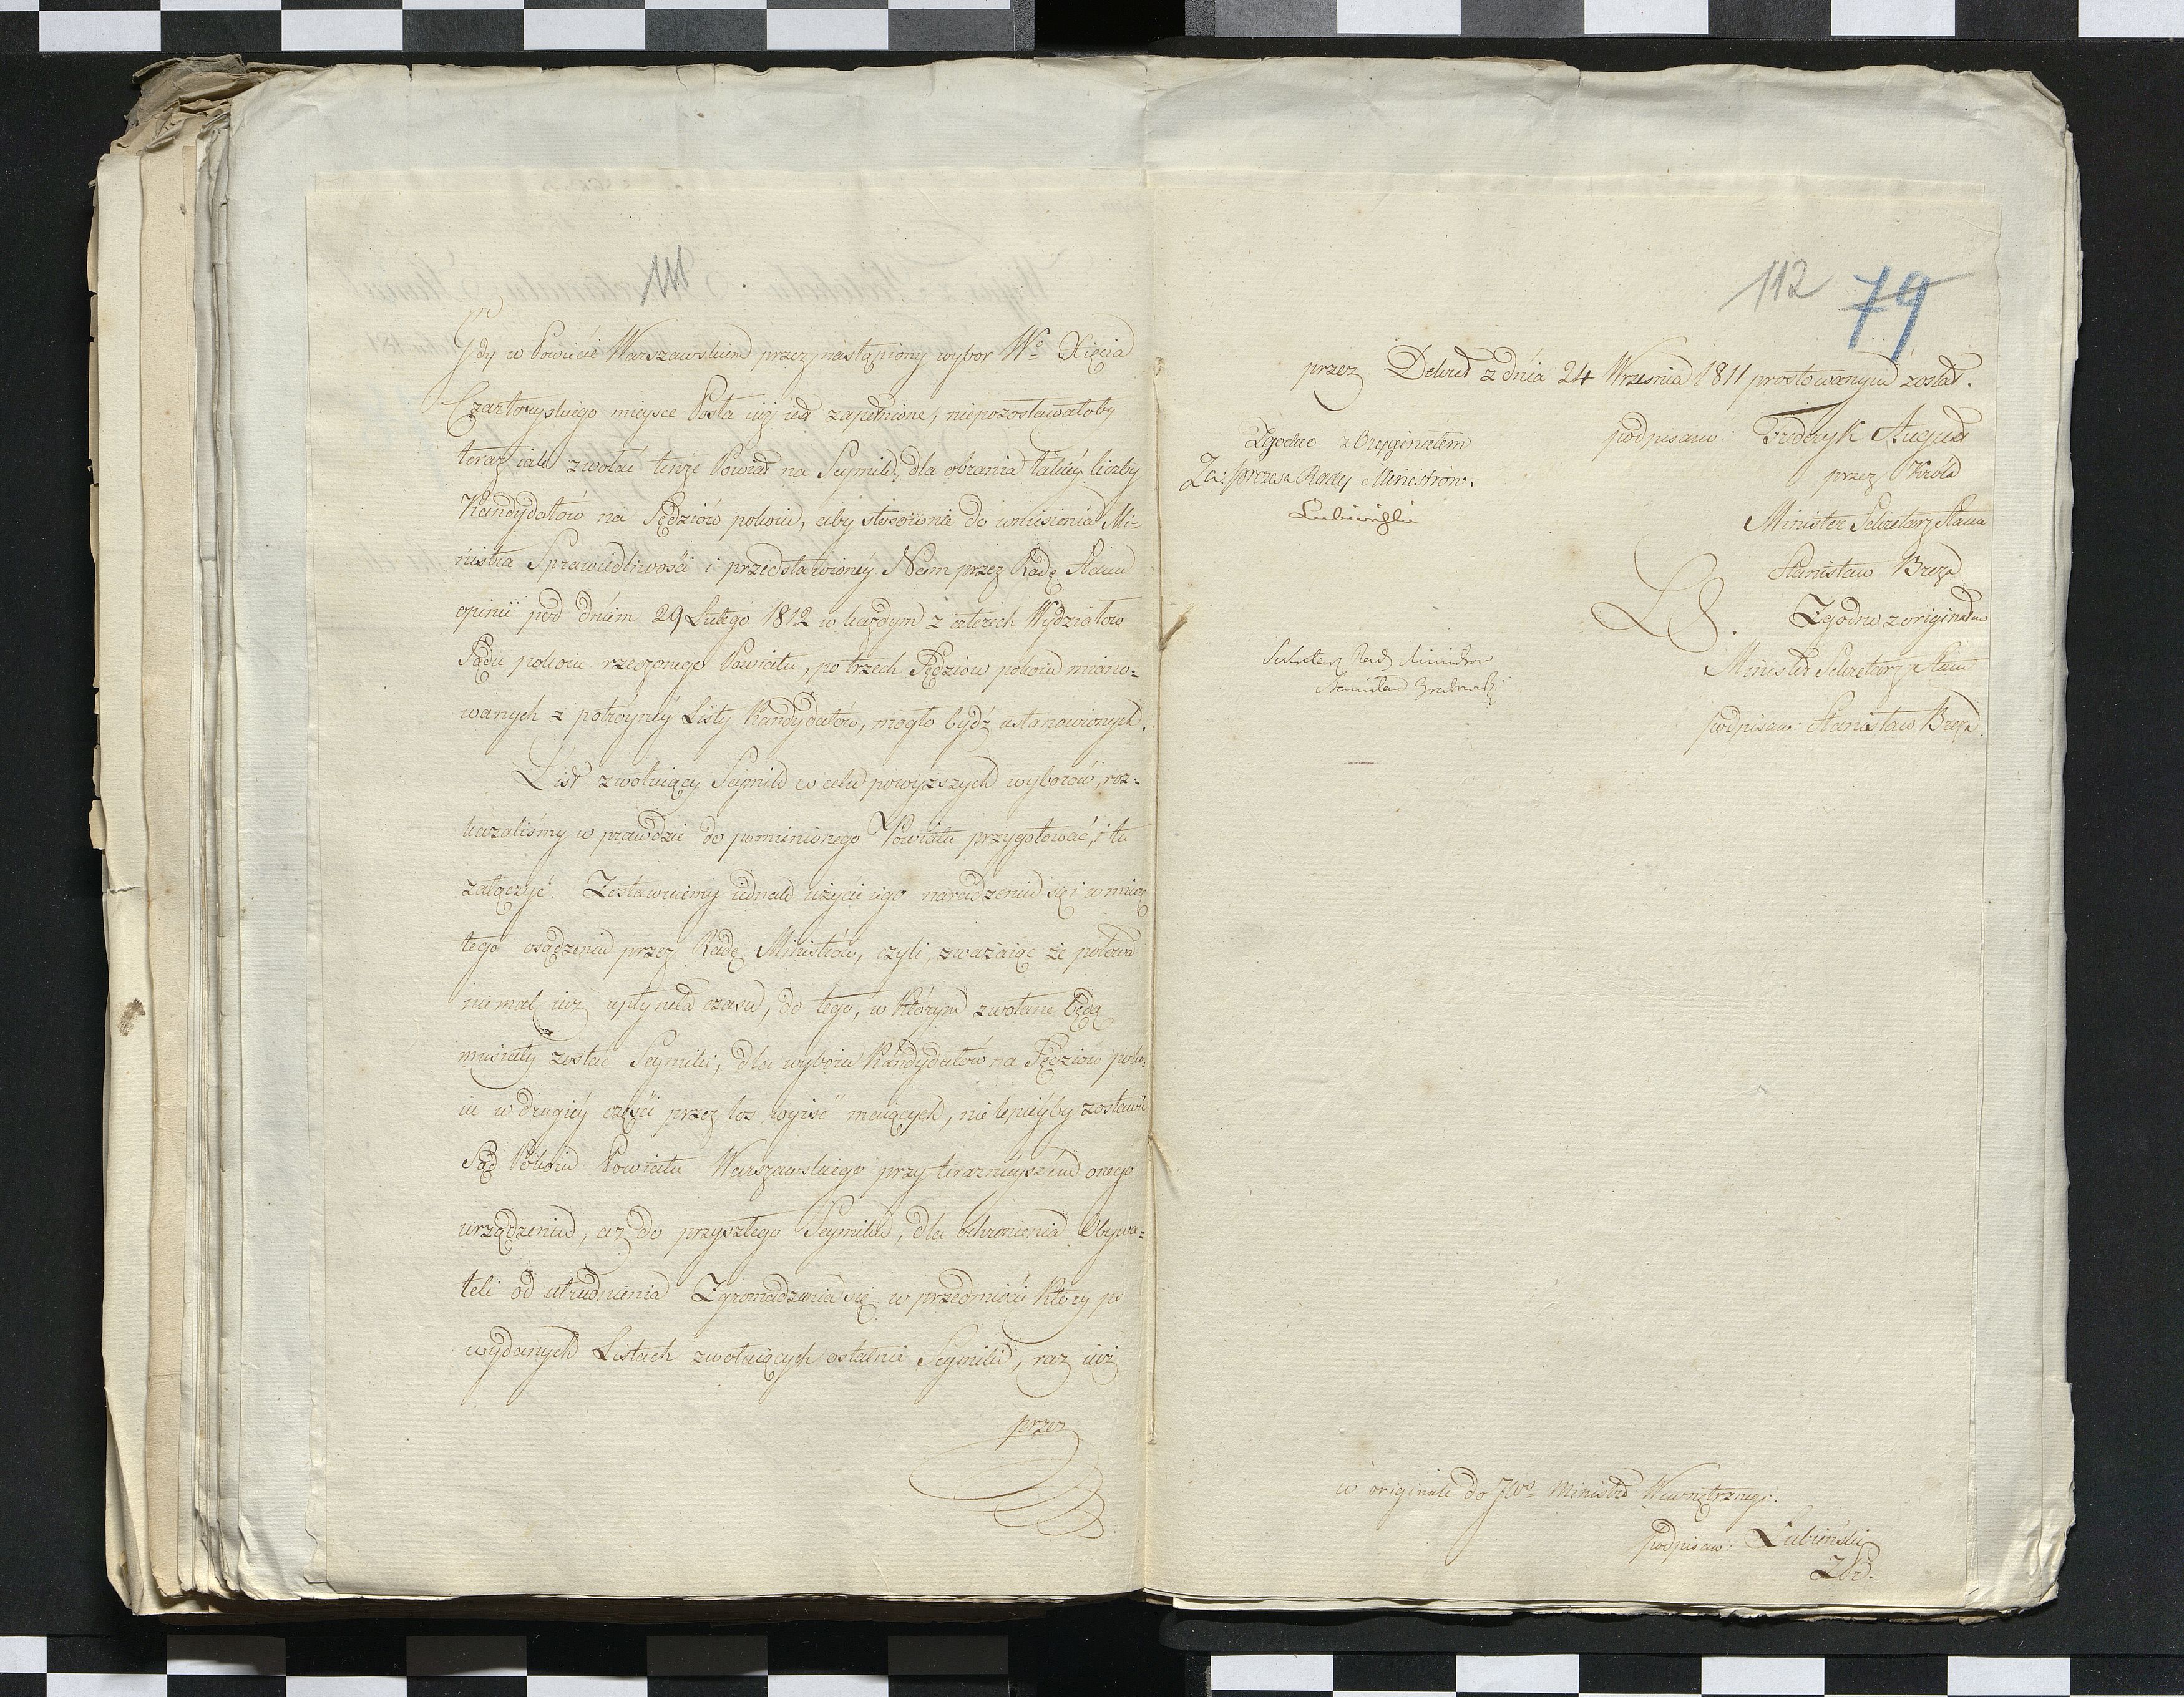 111
Gdy w Powiecie Warszawskim przez nastąpiony wybor Wo Xięcia
Czartoryskiego mieysce Posła iuż iest zapełnione, niepozostawałoby
teraz iak zwołać tenże Powiat na Seymik, dla obrania takiéy liczby
Kandydatów na Sędziów pokoiu, aby stosownie do wniesienia Mi=
nistra Sprawiedliwości i przedstawionéy Nam przez Radę Stanu
opinii pod dniem 29 Lutego 1812 w każdym z czterech Wydziałow
Sądu pokoiu rzeczonego Powiatu, po trzech Sędziow pokoiu miano=
wanych z potróynéy Listy Kandydatów, mogło bydź ustanowionych.
List zwołuiący Seymik w celu powyższych wyborow, roz=
kazaliśmy w prawdzie do pomienionego Powiatu przygotować, i tu
załączyć. Zostawuiemy iednak użycie iego naradzeniu się i w miarę
tego osądzeniu przez Radę Ministrów, czyli, zważaiąc że połowa
niemal iuż upłyneła czasu, do tego, w którym zwołane będą
musiały zostać Seymiki, dla wyboru Kandydatów na Sędziów poko=
iu w drugiéy części przez los wyiść maiących, nie lepiéyby zostawić
Sąd Pokoiu Powiatu Warszawskiego przy teraznieyszém onego
urządzeniu, aż do przyszłego Seymiku, dla ochronienia Obywa=
teli od utrudnienia Zgromadzania się w przedmiocie który po
wydanych Listach zwołuiących ostatnie Seymiki, raz iuż
przez
112 79
przez Dekret z dnia 24 Wrzesnia 1811 prostowanym został.
podpisano: Frideryk August
przez Króla
Minister Sekretarz Stanu
Stanisław Breza
LS. Zgodno z originałem
Minister Sekretarz Stanu
podpisano: Stanisław Breza.
Zgodno z Oryginałem
Za: Prezesa Rady Ministrów.
Łubieński
Sekretarz Rady Ministrow
Stanisław Grabowski
w originale do JWo Ministra Wewnętrznego.
podpisano: Łubieński